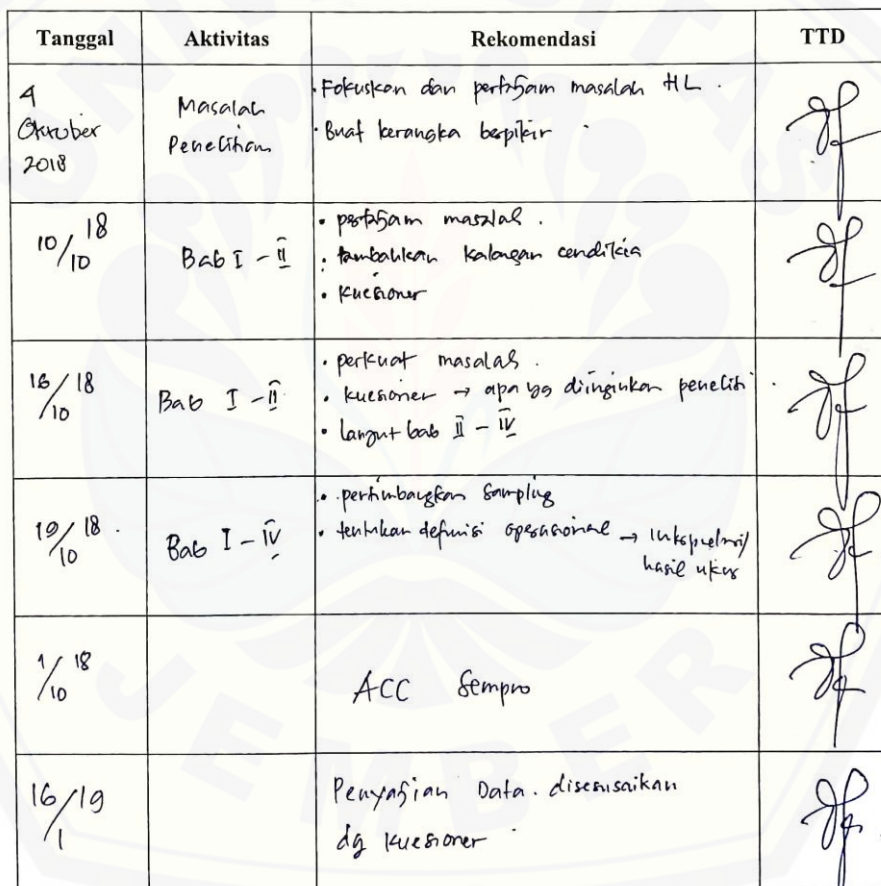 Tanggal Aktivitas Rekomendasi TTD
4
Oktober
2018
Masalah
Penelitian
· Fokuskan dan pertajam masalah HL.
· Buat kerangka berpikir
10/10 18
Bab I - II
• pertajam masalah.
• tambahkan kalangan cendikia
• kuesioner
16/10 18
Bab I - II
• perkuat masalah.
• kuesioner → apa yg diinginkan peneliti
• lanjut bab II - IV
19/10 18
Bab I - IV
• pertimbangkan sampling
• tentukan definisi operasional → interpretasi/
hasil ukur
1/10 18
ACC Sempro
16/1 19
Penyajian Data. disesuaikan
dg kuesioner
JEMBER